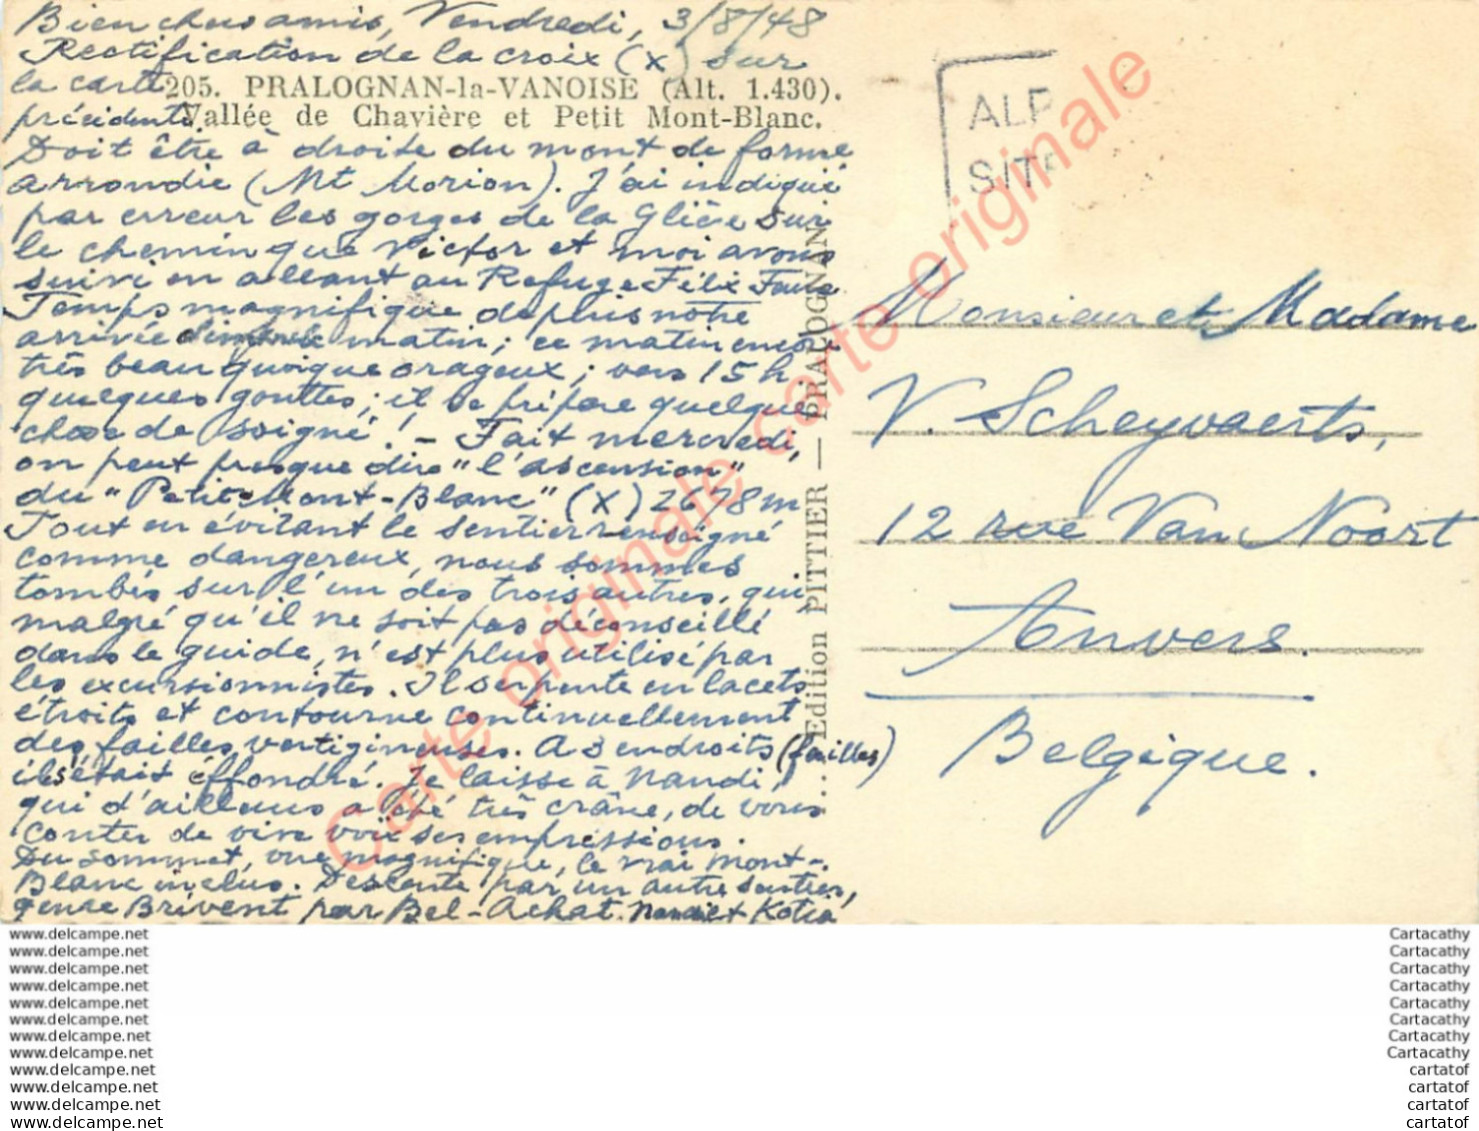 Bien chers amis, Vendredi, 3/8/48
Rectification de la croix (x) sur
la carte
205. PRALOGNAN-la-VANOISE (Alt. 1.430).
précédente.
Vallée de Chavière et Petit Mont-Blanc.
Doit être à droite du mont de forme
arrondie (Mt Morion). J'ai indiqué
par erreur les gorges de la Glière sur
le chemin que Victor et moi avons
suivi en allant au Refuge Félix Faure
Temps magnifique depuis notre
arrivée dimanche matin; ce matin encore
très beau quoique orageux; vers 15 h.
quelques gouttes; il se prépare quelque
chose de soigné! - Fait mercredi,
on peut presque dire "l'ascension"
du "Petit-Mont-Blanc" (X) 2678m
Tout en évitant le sentier renseigné
comme dangereux, nous sommes
tombés sur l'un des trois autres, qui
malgré qu'il ne soit pas déconseillé
dans le guide, n'est plus utilisé par
les excursionnistes. Il serpente en lacets
étroits et contourne continuellement
des failles vertigineuses. A 3 endroits (failles)
il s'était éffondré. Je laisse à Nandi,
qui d'ailleurs a été très crâne, de vous
conter de vive voix ses impressions.
Du sommet, vue magnifique, le vrai Mont-
Blanc inclus. Descente par un autre sentier,
genre Brivent par Bel-Achat. Nandi et Kotia
Edition PITTIER — PRALOGNAN
ALP
SIT
Monsieur et Madame
V. Scheyvaerts,
12 rue Van Noort
Anvers.
Belgique.
Carte originale carte originale carte originale
www.delcampe.net
www.delcampe.net
www.delcampe.net
www.delcampe.net
www.delcampe.net
www.delcampe.net
www.delcampe.net
www.delcampe.net
www.delcampe.net
www.delcampe.net
www.delcampe.net
www.delcampe.net
Cartacathy
Cartacathy
Cartacathy
Cartacathy
Cartacathy
Cartacathy
Cartacathy
Cartacathy
cartatof
cartatof
cartatof
cartatof